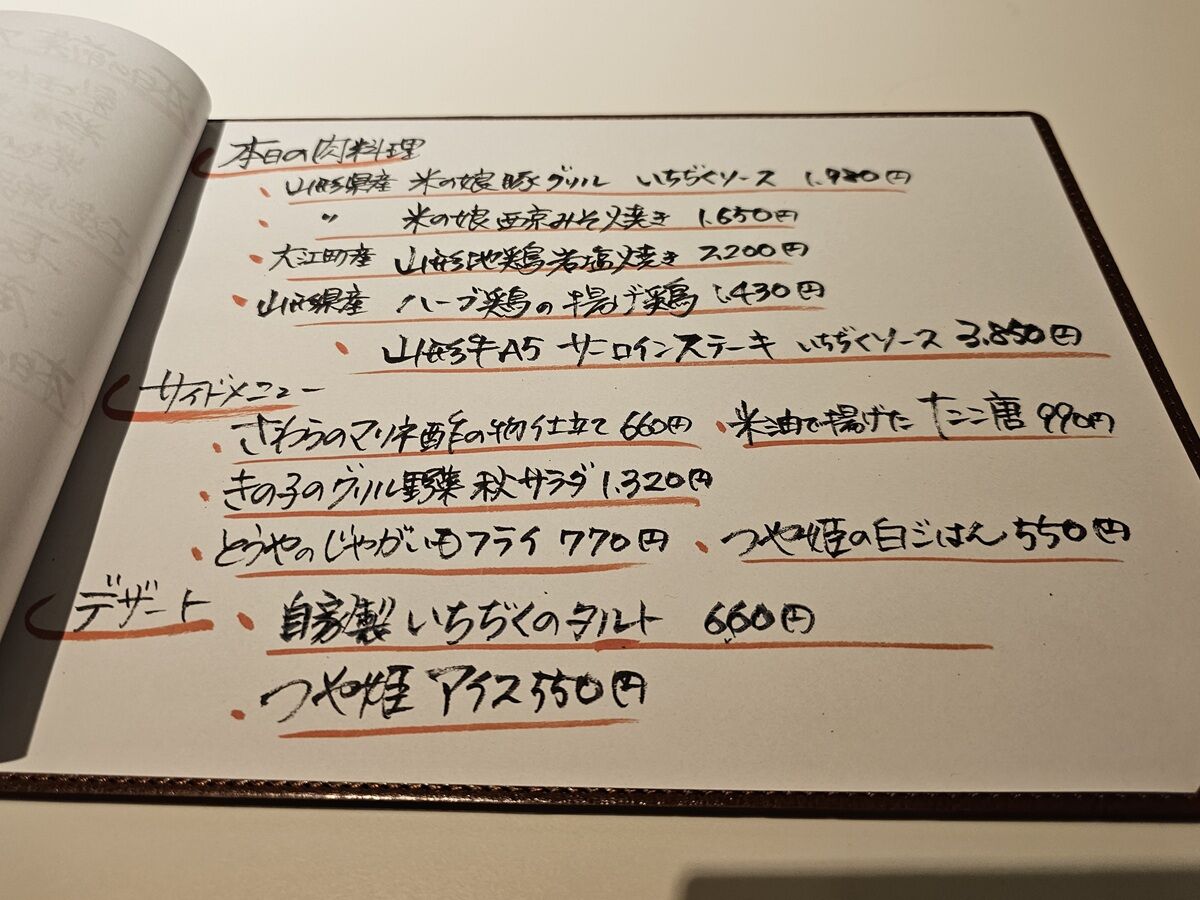 本日の肉料理
・山形県産 米の娘豚グリル いちぢくソース 1,980円
・〃 米の娘西京みそ焼き 1,650円
・大江町産 山形地鶏岩塩焼き 2,200円
・山形県産 ハーブ鶏の揚げ鶏 1,430円
・山形牛A5 サーロインステーキ いちぢくソース 3,850円
サイドメニュー
・さわらのマリネ酢の物仕立て 660円 ・米油で揚げた たこ唐 990円
・きの子のグリル野菜 秋サラダ 1,320円
・とうやのじゃがいもフライ 770円 ・つや姫の白ごはん 550円
デザート ・自家製いちぢくのタルト 660円
・つや姫 アイス 550円